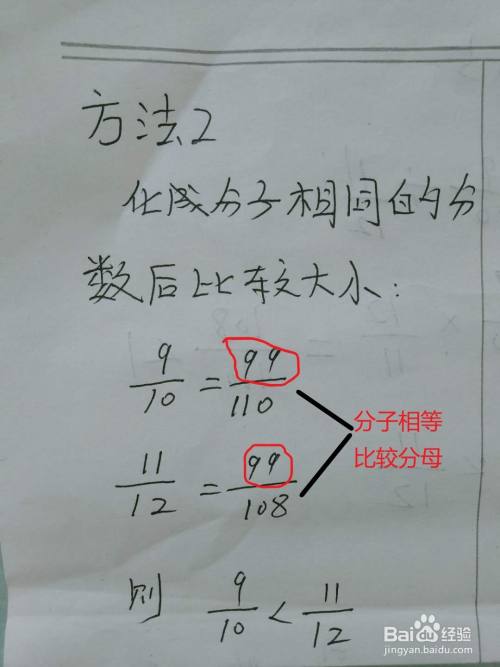 方法2
化成分子相同的分
数后比较大小:
9/10 = 99/110
分子相等
比较分母
11/12 = 99/108
则 9/10 < 11/12
Baidu经验
jingyan.baidu.com